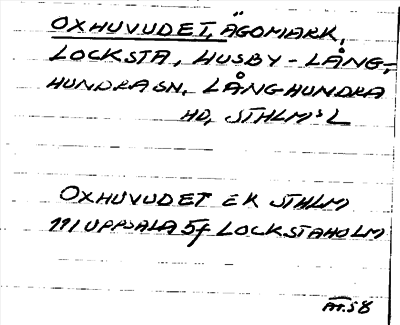 OXHUVUDET, ÄGOMARK,
LOCKSTA, HUSBY-LÅNG-
HUNDRA SN. LÅNGHUNDRA
HD, STHLM:S L
OXHUVUDET EK STHLM
111 UPPSALA 5f LOCKSTAHOLM